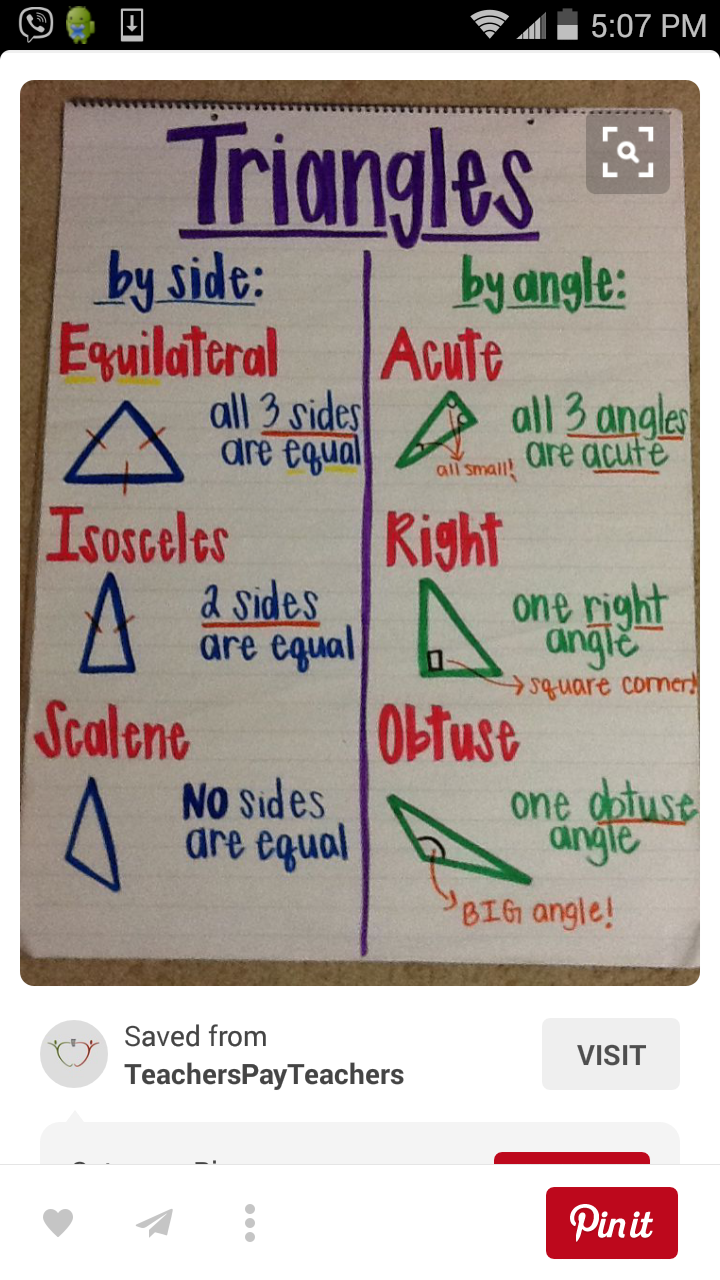 5:07 PM
Triangles
by side:
Equilateral
all 3 sides
are equal
Isosceles
2 sides
are equal
Scalene
NO sides
are equal
by angle:
Acute
all 3 angles
are acute
all small!
Right
one right
angle
square corner!
Obtuse
one obtuse
angle
BIG angle!
Saved from
TeachersPayTeachers
VISIT
Pin it